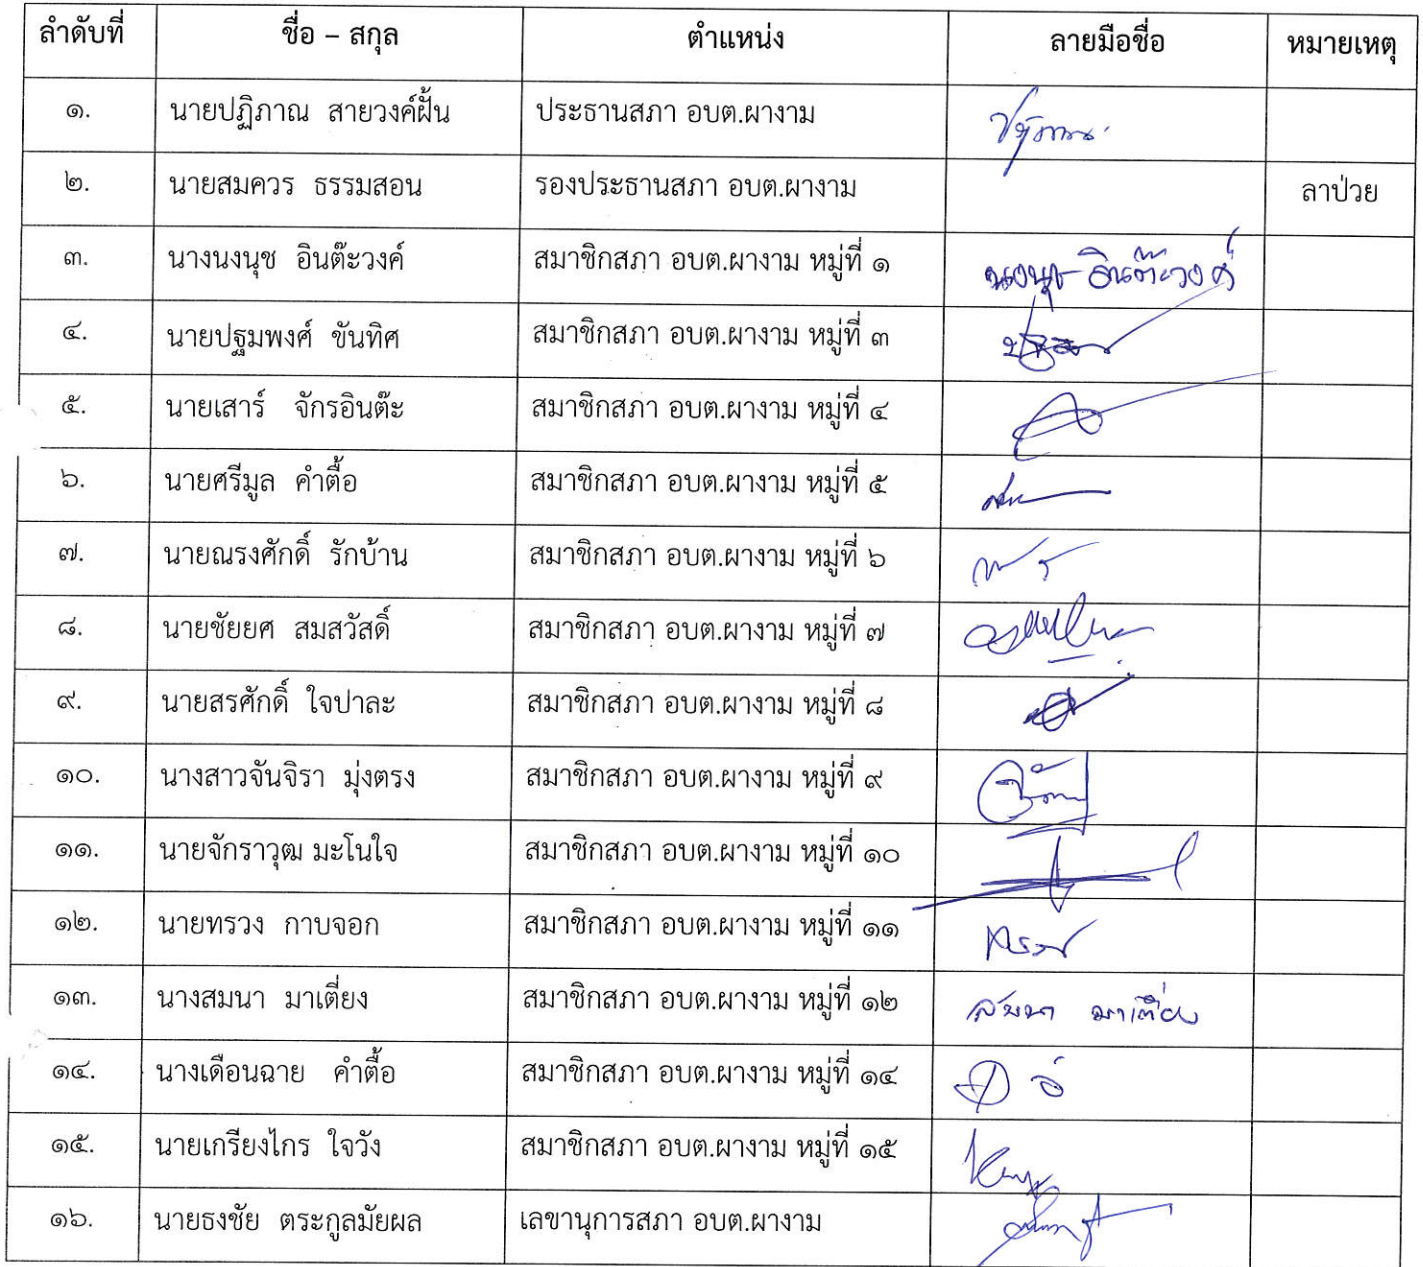 ลำดับที่ ชื่อ – สกุล ตำแหน่ง ลายมือชื่อ หมายเหตุ
๑. นายปฏิภาณ สายวงค์ฝั้น ประธานสภา อบต.ผางาม
๒. นายสมควร ธรรมสอน รองประธานสภา อบต.ผางาม ลาป่วย
๓. นางนงนุช อินต๊ะวงค์ สมาชิกสภา อบต.ผางาม หมู่ที่ ๑ นงนุช อินต๊ะวงค์
๔. นายปฐมพงศ์ ขันทิศ สมาชิกสภา อบต.ผางาม หมู่ที่ ๓
๕. นายเสาร์ จักรอินต๊ะ สมาชิกสภา อบต.ผางาม หมู่ที่ ๔
๖. นายศรีมูล คำตื้อ สมาชิกสภา อบต.ผางาม หมู่ที่ ๕
๗. นายณรงศักดิ์ รักบ้าน สมาชิกสภา อบต.ผางาม หมู่ที่ ๖
๘. นายชัยยศ สมสวัสดิ์ สมาชิกสภา อบต.ผางาม หมู่ที่ ๗
๙. นายสรศักดิ์ ใจปาละ สมาชิกสภา อบต.ผางาม หมู่ที่ ๘
๑๐. นางสาวจันจิรา มุ่งตรง สมาชิกสภา อบต.ผางาม หมู่ที่ ๙
๑๑. นายจักราวุฒ มะโนใจ สมาชิกสภา อบต.ผางาม หมู่ที่ ๑๐
๑๒. นายทรวง กาบจอก สมาชิกสภา อบต.ผางาม หมู่ที่ ๑๑
๑๓. นางสมนา มาเตี่ยง สมาชิกสภา อบต.ผางาม หมู่ที่ ๑๒ สมนา มาเตี่ยง
๑๔. นางเดือนฉาย คำตื้อ สมาชิกสภา อบต.ผางาม หมู่ที่ ๑๔
๑๕. นายเกรียงไกร ใจวัง สมาชิกสภา อบต.ผางาม หมู่ที่ ๑๕
๑๖. นายธงชัย ตระกูลมัยผล เลขานุการสภา อบต.ผางาม